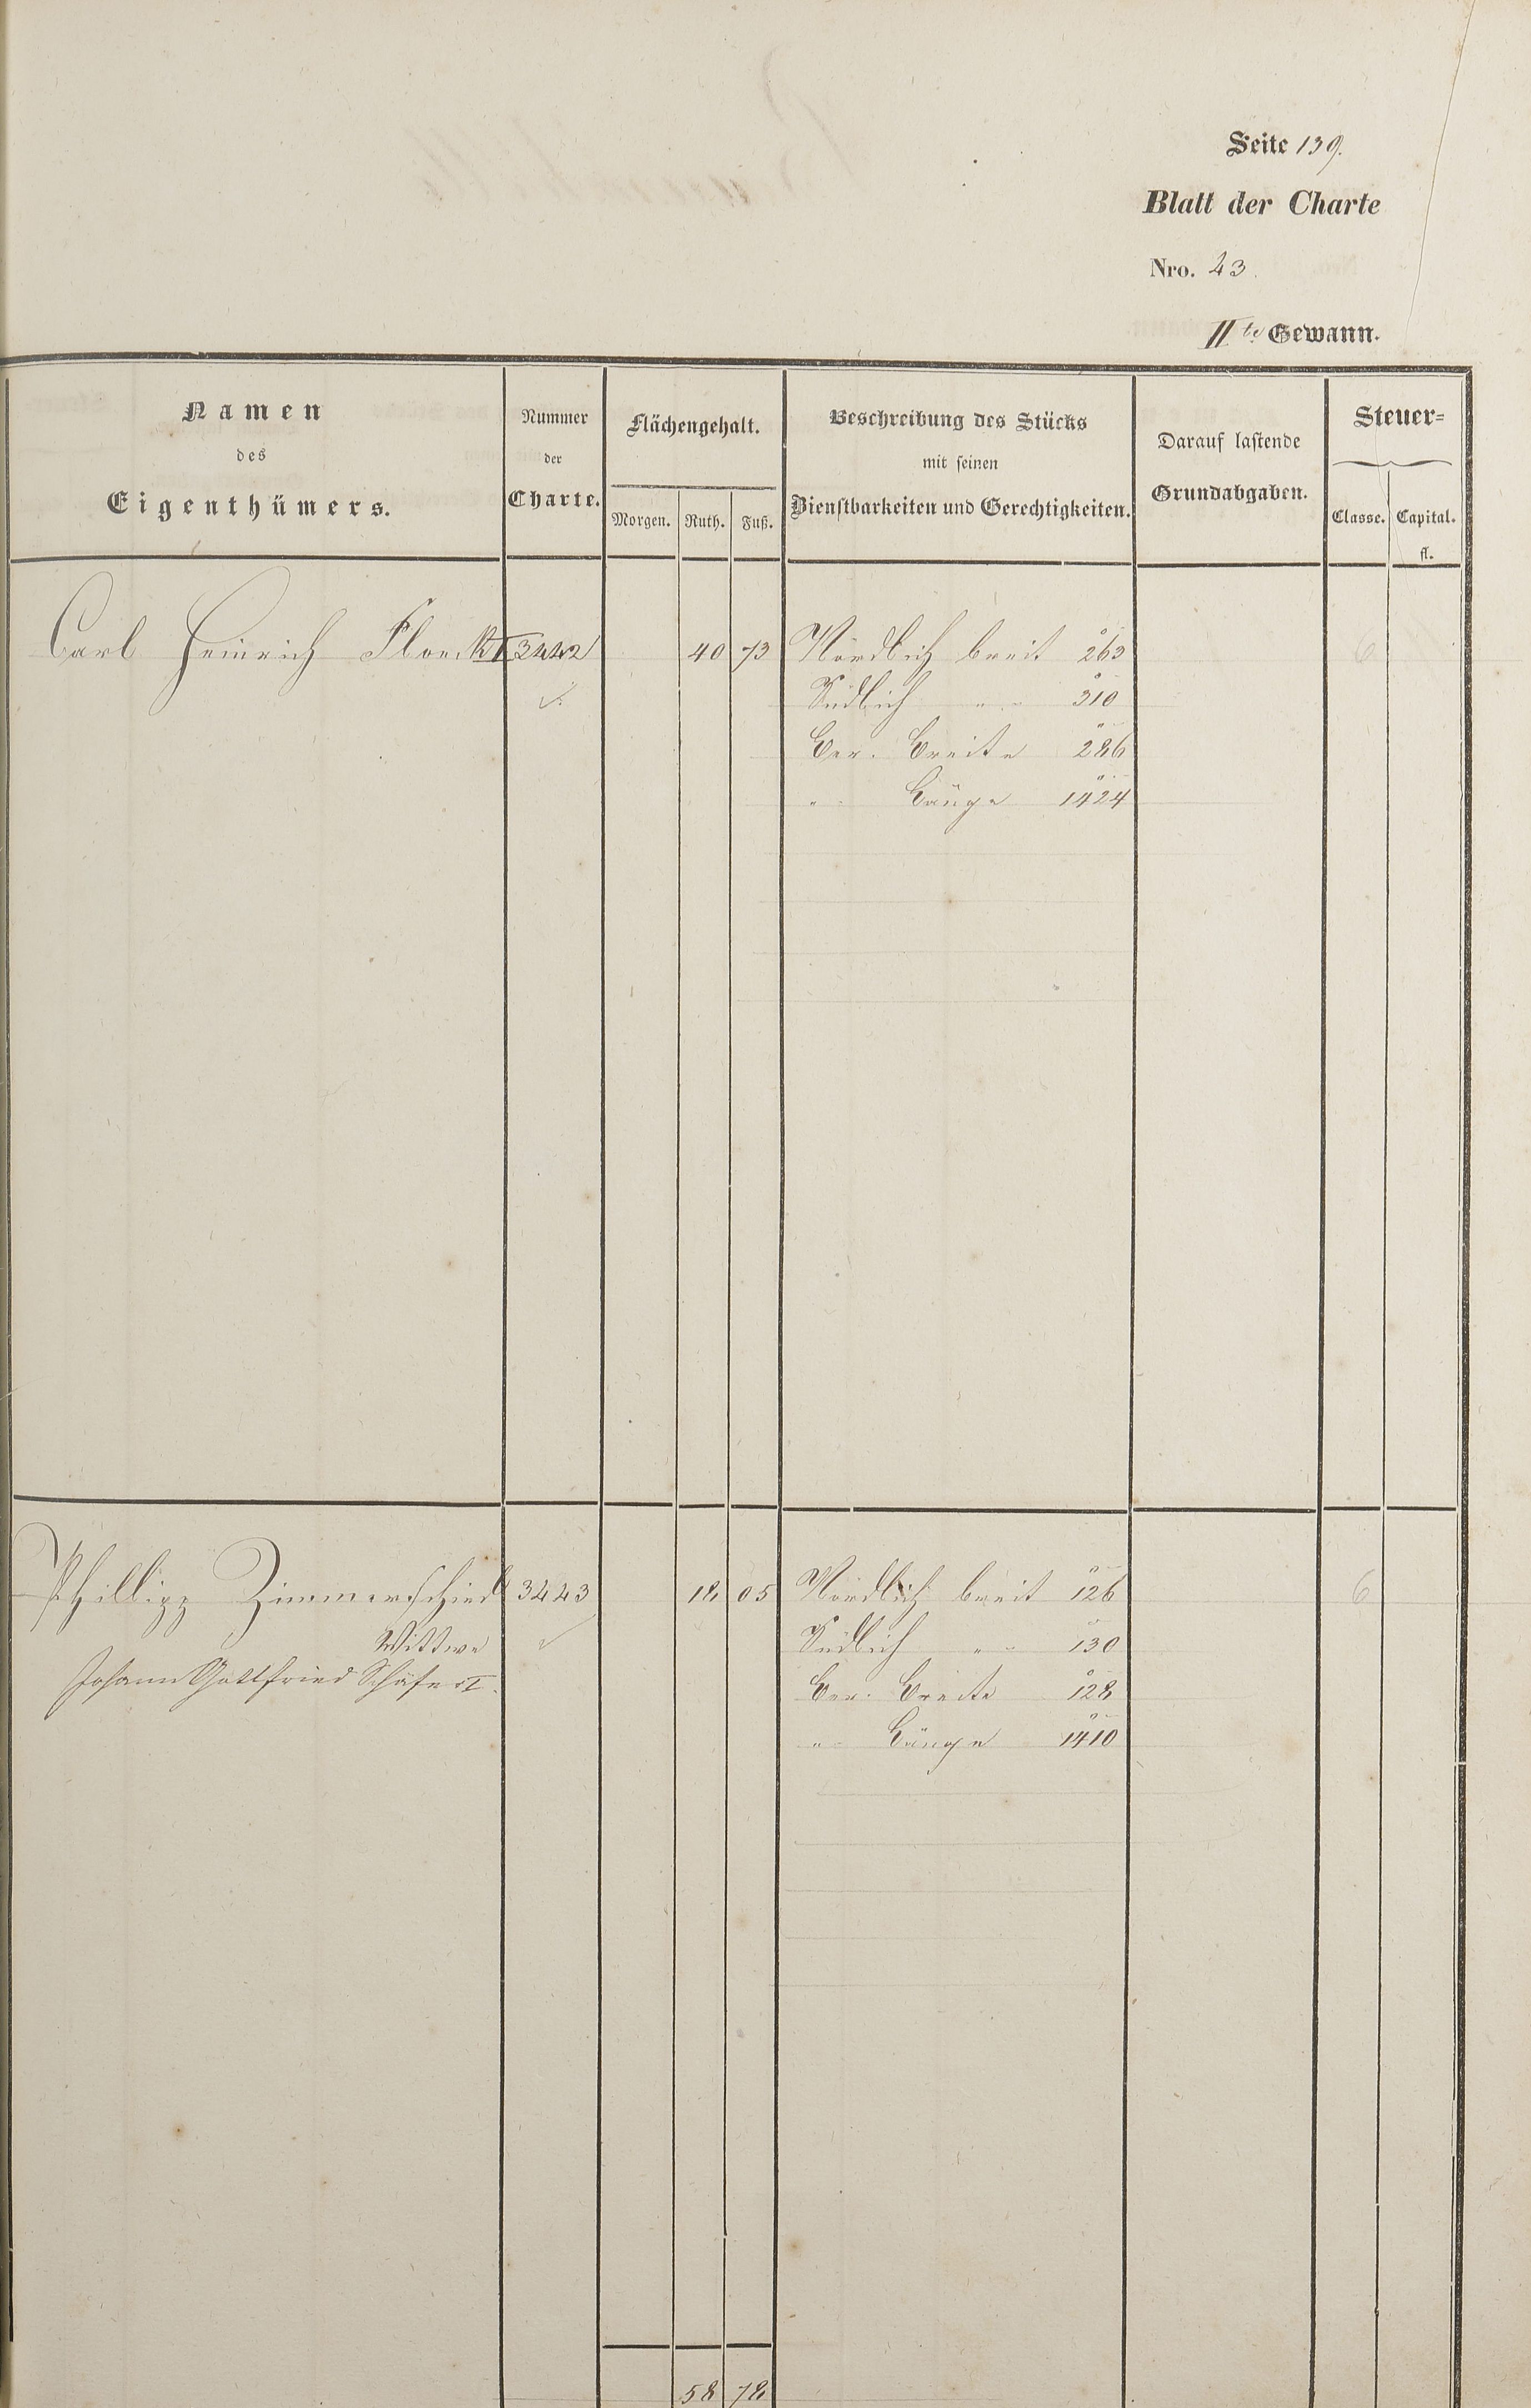 Seite 139.
Blatt der Charte
Nro. 43.
IIte Gewann.
Namen
des
Eigenthümers.
Nummer
der
Charte.
Flächengehalt.
Morgen. Ruth. Fuß.
Beschreibung des Stücks
mit seinen
Dienstbarkeiten und Gerechtigkeiten.
Darauf lastende
Grundabgaben.
Steuer=
Classe. Capital.
fl.
Carl Heinrich Floeck I 3442 40 73 Nördlich breit 263 6
Südlich " " 310
Ber. Breite 286
" Länge 1424
Phillipp Zimmerschied 3443 18 05 Nördlich breit 126 6
Wittwe Südlich " " 130
Johann Gottfried Schäfer I. Ber. Breite 128
" Länge 1410
58 78